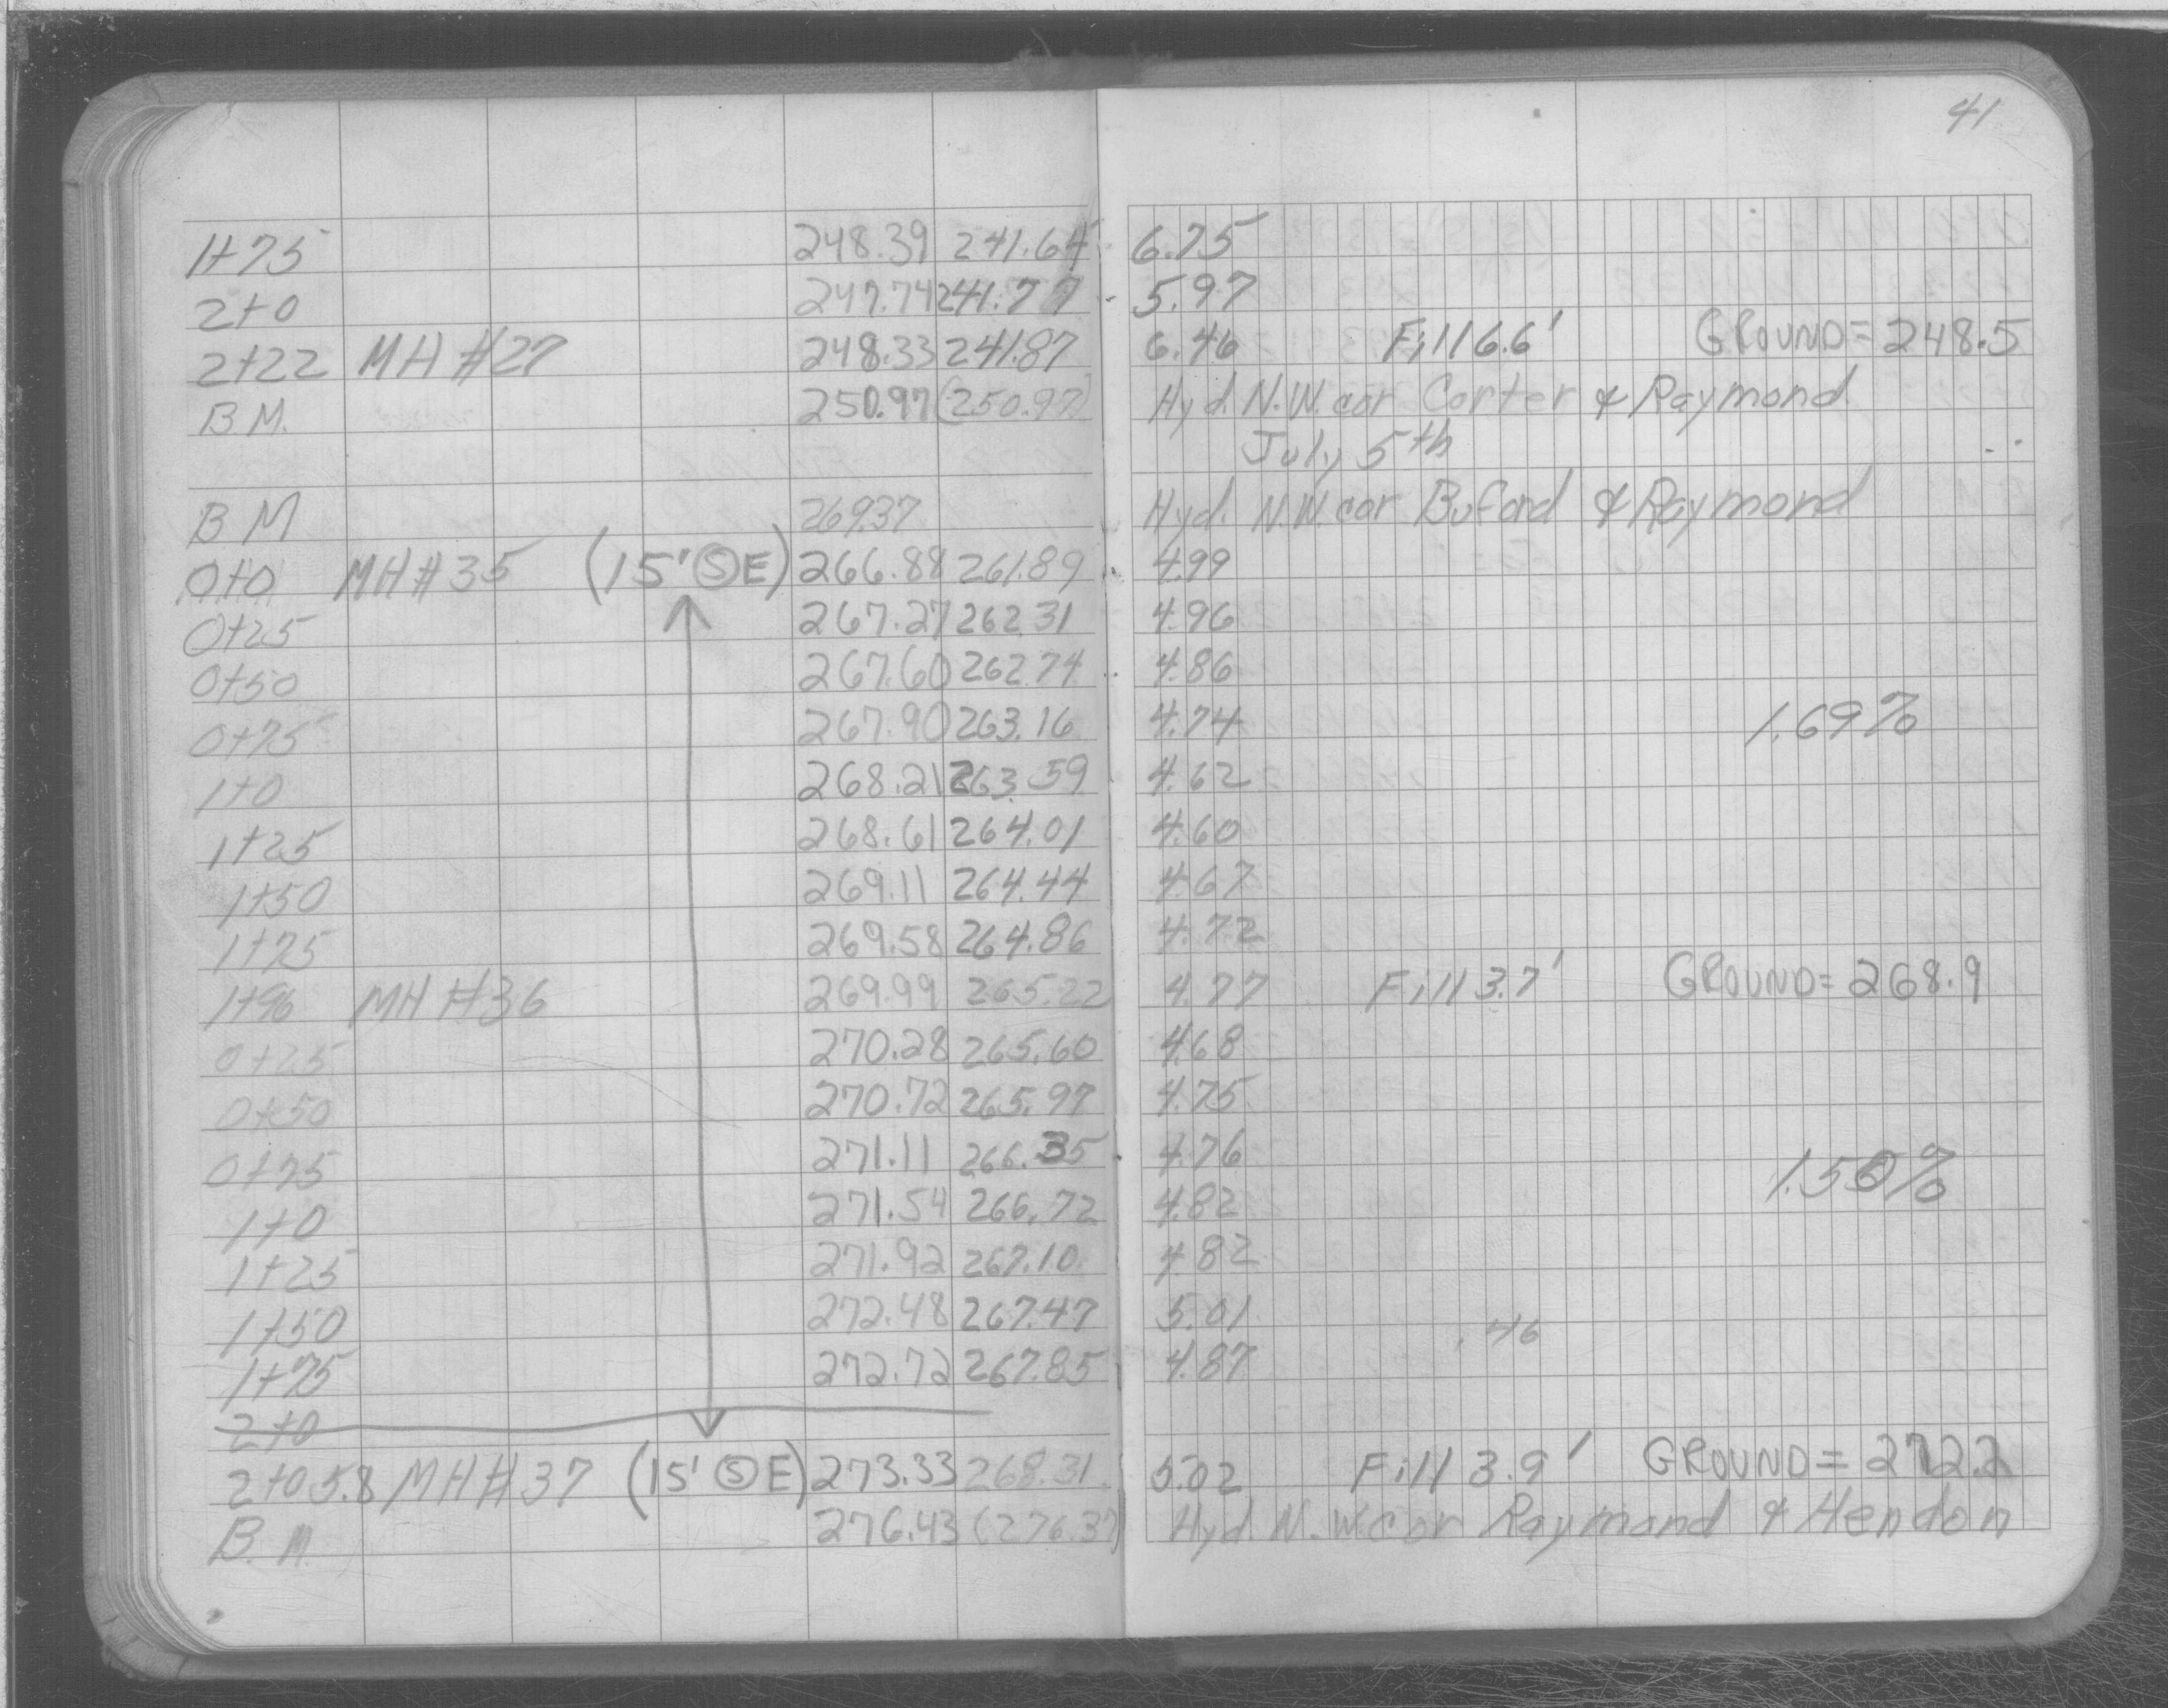 41
1+75 248.39 241.64 6.75
2+0 247.74 241.77 5.97
2+22 MH #27 248.33 241.87 6.46 Fill 6.6' GROUND= 248.5
B M. 250.97 (250.97) Hyd. N.W. cor. Carter & Raymond
July 5th
B M 269.37 Hyd. N.W. cor Buford & Raymond
0+0 MH# 35 (15' S E) 266.88 261.89 4.99
0+25 267.27 262.31 4.96
0+50 267.60 262.74 4.86
0+75 267.90 263.16 4.74 1.69%
1+0 268.21 263.59 4.62
1+25 268.61 264.01 4.60
1+50 269.11 264.44 4.67
1+75 269.58 264.86 4.72
1+96 MH #36 269.99 265.22 4.77 Fill 3.7' GROUND= 268.9
0+25 270.28 265.60 4.68
0+50 270.72 265.97 4.75
0+75 271.11 266.35 4.76 1.50%
1+0 271.54 266.72 4.82
1+25 271.92 267.10 4.82
1+50 272.48 267.47 5.01 .46
1+75 272.72 267.85 4.87
2+0
2+05.8 MH #37 (15' S E) 273.33 268.31 5.02 Fill 3.9' GROUND= 272.2
B. M. 276.43 (276.37) Hyd. N.W. cor Raymond & Hendon